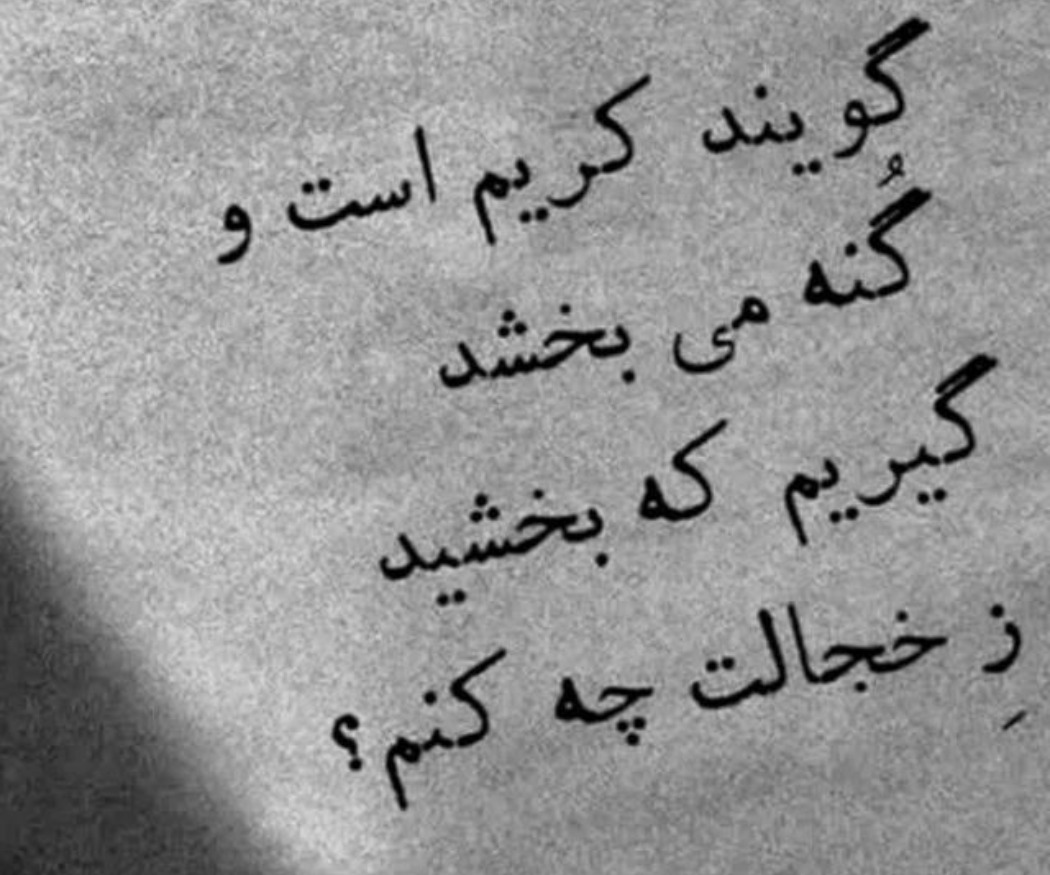 گویند کریم است و
گُنه می بخشد
گیریم که بخشید
زِ خجالت چه کنم؟